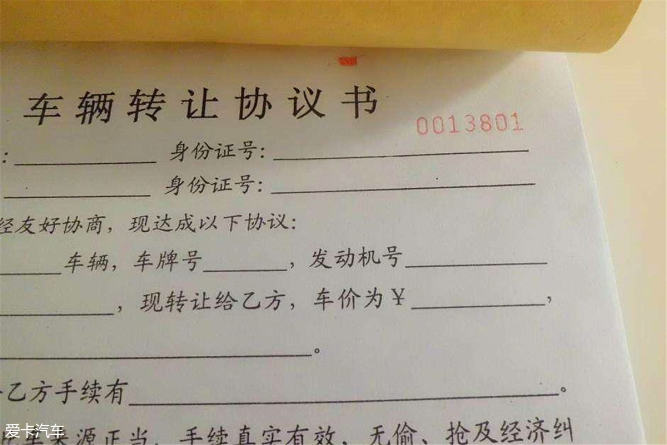 车辆转让协议书
0013801
:____________ 身份证号:____________________
____________ 身份证号:____________________
经友好协商，现达成以下协议:
______车辆，车牌号________，发动机号____________
____________，现转让给乙方，车价为￥____________，
______________________________。
乙方手续有________________________________________。
源正当，手续真实有效，无偷、抢及经济纠
爱卡汽车